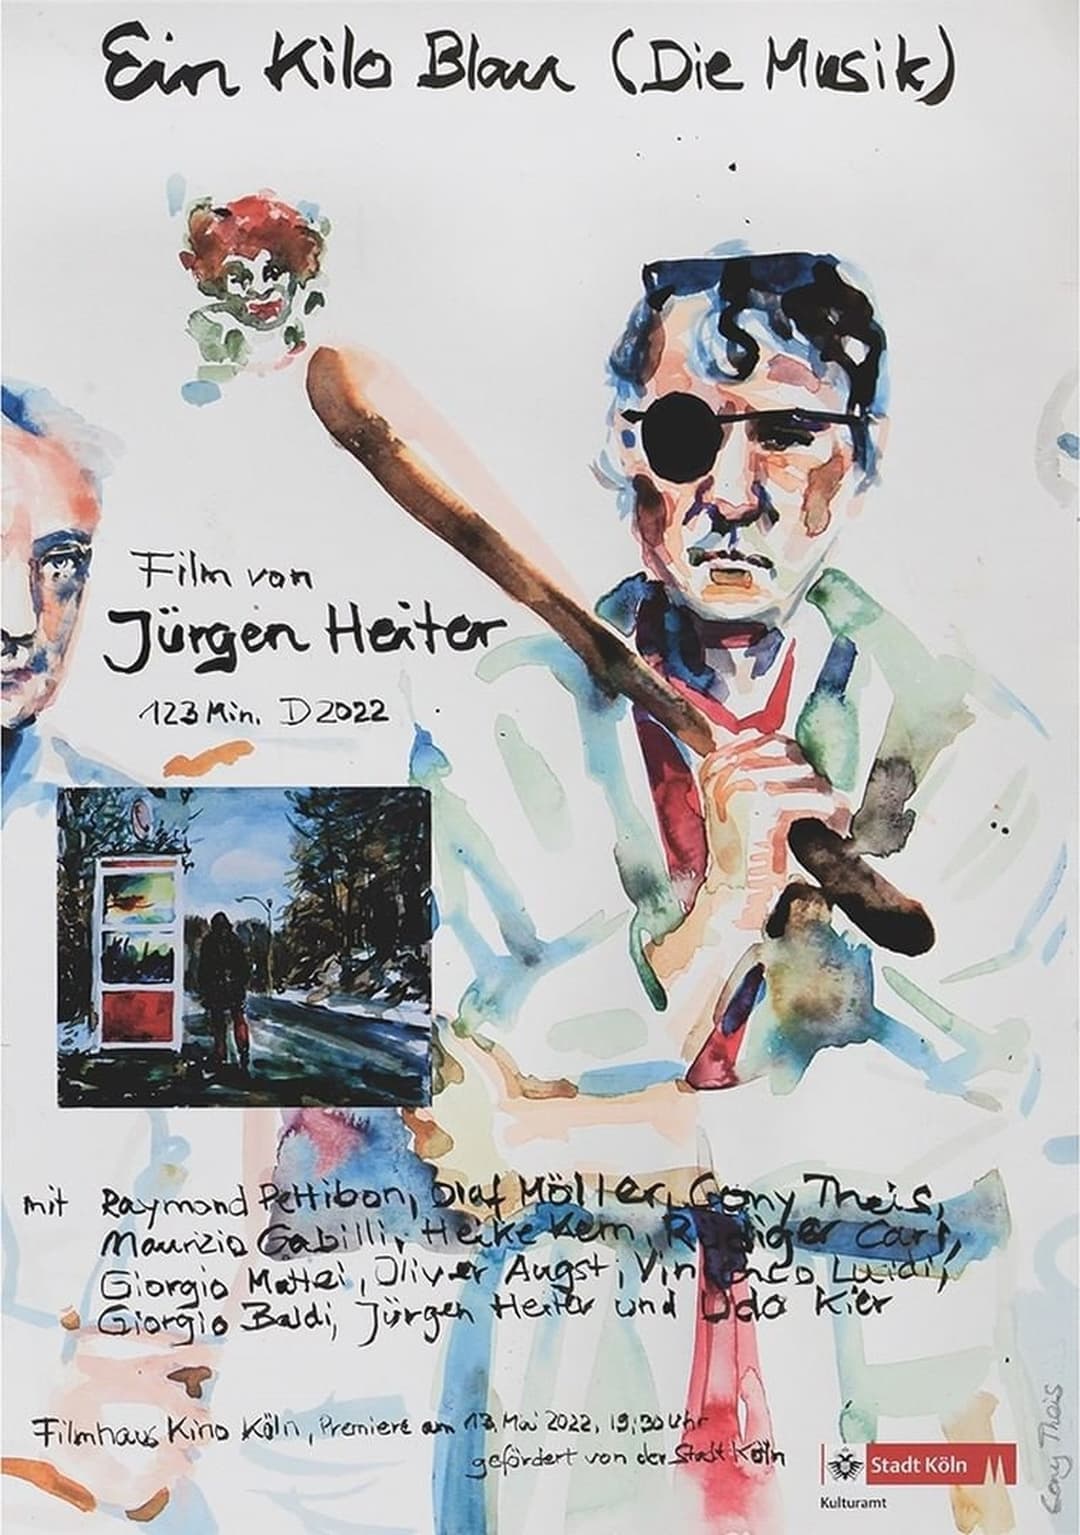 Ein Kilo Blau (Die Musik)
Film von
Jürgen Heiter
123 Min. D 2022
mit Raymond Pettibon, Olaf Möller, Cony Theis,
Maurizio Gabilli, Heike Kern, Rüdiger Carl,
Giorgio Mattei, Oliver Augst, Vincenco Luidi,
Giorgio Baldi, Jürgen Heiter und Udo Kier
Filmhaus Kino Köln, Premiere am 13. Mai 2022, 19,30 Uhr
gefördert von der Stadt Köln
Stadt Köln
Kulturamt
Cony Theis